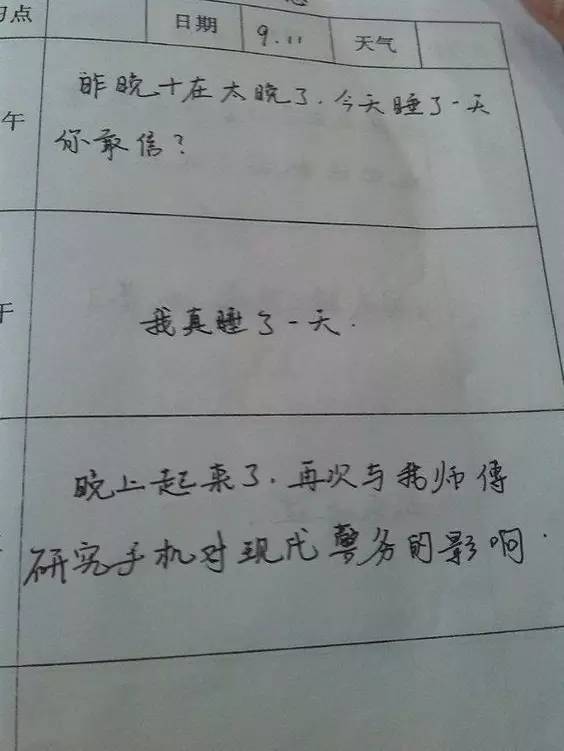 点
日期 9.11 天气
昨晚十在太晚了.今天睡了一天
午
你敢信?
午
我真睡了一天.
晚上起来了.再次与我师傅
研究手机对现代警务的影响.